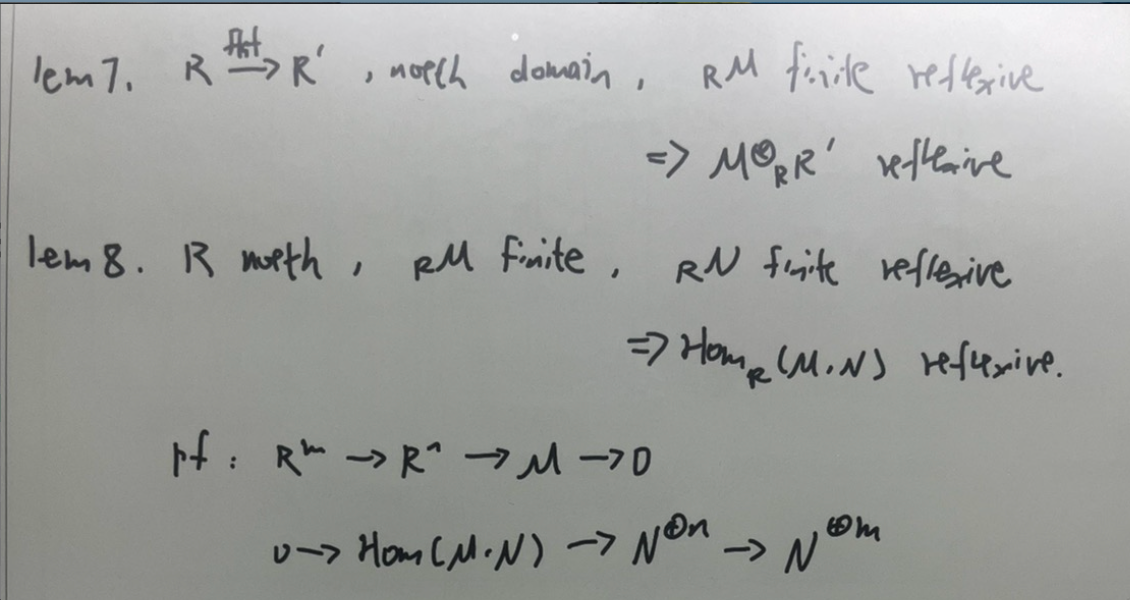 lem 7. R \xrightarrow{flat} R' , noeth domain , _R M finite reflexive
⇒ M⊗_R R' reflexive
lem 8. R noeth , _R M finite , _R N finite reflexive
⇒ Hom_R (M.N) reflexive.
pf : R^m → R^n → M → 0
0 → Hom(M.N) → N^{⊕n} → N^{⊕m}